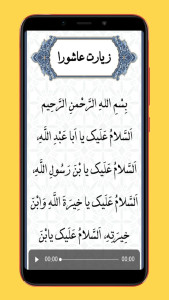 زیارت عاشورا
بِسْمِ اللهِ الرَّحْمنِ الرَّحيمِ
اَلسَّلامُ عَلَيْكَ يا اَبا عَبْدِ اللَّهِ،
اَلسَّلامُ عَلَيْكَ يا بْنَ رَسُولِ اللَّهِ،
اَلسَّلامُ عَلَيْكَ يا خِيَرَةَ اللَّهِ وَابْنَ
خِيَرَتِهِ، اَلسَّلامُ عَلَيْكَ يابْنَ
00:00 00:00